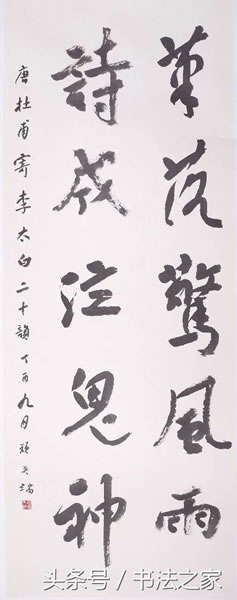 筆落驚風雨
詩成泣鬼神
唐杜甫寄李太白二十韻 丁酉九月
头条号 / 书法之家